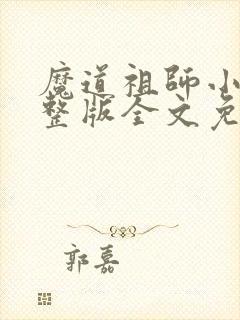 魔道祖师小
整版全文免
郭嘉